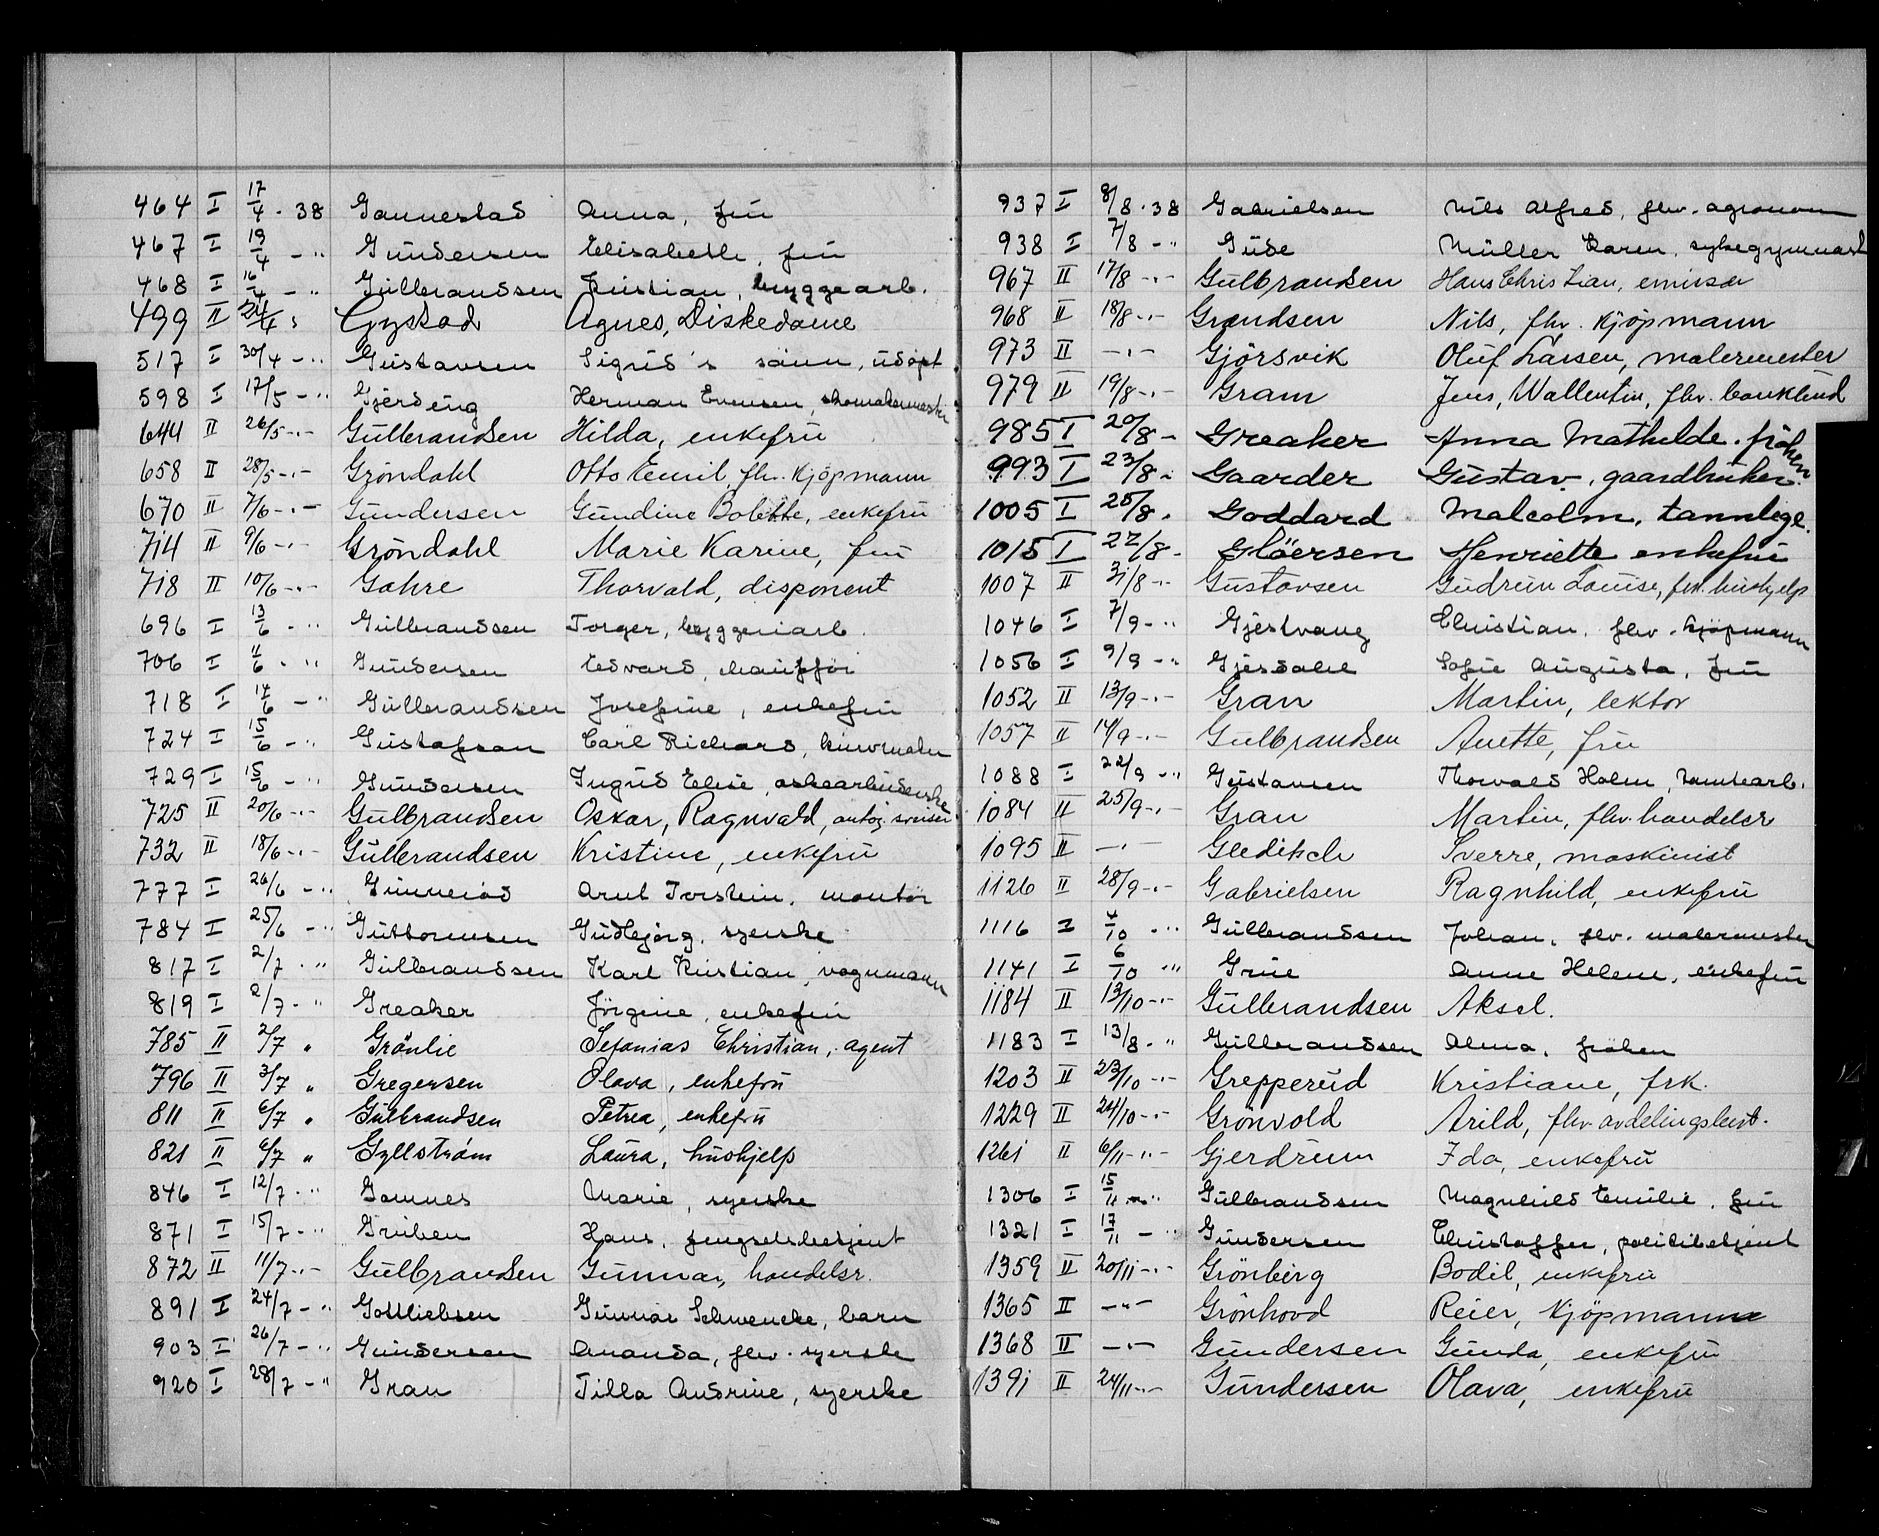 464 I 17/4 - 38 Gannestad Anna, fru
467 I 19/4 - " Gundersen Elisabeth, fru
468 I 16/4 - " Gulbrandsen Kristian, bryggearb.
499 II 24/4 " Gystad Agnes, Diskedame
517 I 30/4 - " Gustavsen Sigrid's sönn, udøpt
598 I 17/5 - " Gjerding Herman Evensen, skomakermester
644 II 26/5 - " - Gulbrandsen Hilda, enkefru
658 II 28/5 - " - Grøndahl Otto Emil, fhv. kjøpmann
670 II 7/6 - " - Gundersen Gundine Bolette, enkefru
714 II 9/6 - " - Grøndahl Marie Karine, fru
718 II 10/6 - " - Gahre Thorvald, disponent
696 I 13/6 - " Gulbrandsen Torger, bryggeriarb.
706 I 11/6 - " Gundersen Edvard, chaufför
718 I 14/6 - " Gulbrandsen Josefine, enkefru
724 I 15/6 - " Gustafson Carl Richard,
729 I 15/6 - " Gundersen Ingrid Elise, eskearbeiderske
725 II 20/6 - " - Gulbrandsen Oskar, Ragnvald,
732 II 18/6 - " - Gulbrandsen Kristine, enkefru
777 I 26/6 - " Gunnerød Arnt Torstein, montör
784 I 25/6 - " Guttormsen Gudbjørg, syerske
817 I 2/7 - " Gulbrandsen Karl Kristian, vognmann
819 I 2/7 - " Greaker Jörgine, enkefru
785 II 2/7 " Grönlie Sefanias Christian, agent
796 II 3/7 " Gregersen Olava, enkefru
811 II 6/7 " Gulbrandsen Petrea, enkefru
821 II 6/7 " Gyllstrøm Laura, hushjelp
846 I 12/7 - " Gamnes Marie, syerske
871 I 15/7 - " Gruben Hans, fengselsbetjent
872 II 11/7 - " - Gulbrandsen Gunnar, handelsr.
891 I 24/7 - " Gottliebsen Gunnar Schwencke, barn
903 I 26/7 - " Gundersen Ananda, fhv. syerske
920 I 28/7 - " Gran Tilla Andrine, syerske
937 I 8/8 - 38 Gabrielsen Nils Alfred, fhv. agronom
938 I 7/8 - " Gude Müller Karen, sykegymnast
967 II 17/8 - " - Gulbrandsen Hans Christian, emissær
968 II 18/8 - " - Grandsen Nils, fhv. kjøpmann
973 II - " - Gjörsvik Oluf Larsen, malermester
979 II 19/8 - " - Gram Jens, Wallentin, fhv. bankbud
985 I 20/8 - Greaker Anna Mathilde, fröken
993 I 23/8 - Gaarder Gustav, gaardbruker
1005 I 25/8 - Goddard Malcolm, tannlege
1015 I 27/8 - Glöersen Henriette enkefru
1007 II 31/8 - " Gustavsen Gudrun Louise, frk. hushjelp
1046 I 7/9 - " Gjestvang Christian, fhv. kjøpmann
1056 I 9/9 - " Gjesdahl Sofie Augusta, fru
1052 II 13/9 - " - Gran Martin, lektor
1057 II 14/9 - " - Gulbrandsen Anette, fru
1088 I 22/9 - " Gustavsen Thorvald Holm, tomtearb.
1084 II 25/9 - " - Gran Martin, fhv. handelsr
1095 II - " - Gleditsch Sverre, maskinist
1126 II 28/9 - " - Gabrielsen Ragnhild, enkefru
1116 I 4/10 - " Gulbrandsen Johan, fhv. malermester
1141 I 6/10 " Grue Anne Helene, enkefru
1184 II 13/10 - " - Gulbrandsen Aksel.
1183 I 13/8 - " Gulbrandsen Alma, fröken
1203 II 23/10 - " - Grepperud Kristiane, frk.
1229 II 24/10 - " - Grönvold Arild, fhv. avdelingsbest.
1261 II 6/11 - " - Gjerdrum Ida, enkefru
1306 I 15/11 - " Gulbrandsen Magnhild Emilie, fru
1321 I 17/11 - " Gundersen Christoffer, politibetjent
1359 II 20/11 - " - Grönberg Bodil, enkefru
1365 II - " - Grönhovd Reier, kjøpmann
1368 II - " - Gundersen Gunda, enkefru
1391 II 24/11 - " - Gundersen Olava, enkefru